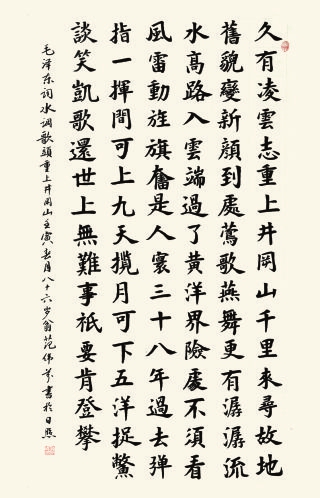 久有凌雲志重上井岡山千里來尋故地
舊貌變新顔到處鶯歌燕舞更有潺潺流
水高路入雲端過了黄洋界險處不須看
風雷動旌旗奮是人寰三十八年過去弹
指一揮間可上九天攬月可下五洋捉鱉
談笑凱歌還世上無難事衹要肯登攀
毛泽东词水调歌頭重上井冈山壬寅春月八十六岁翁范書於日照